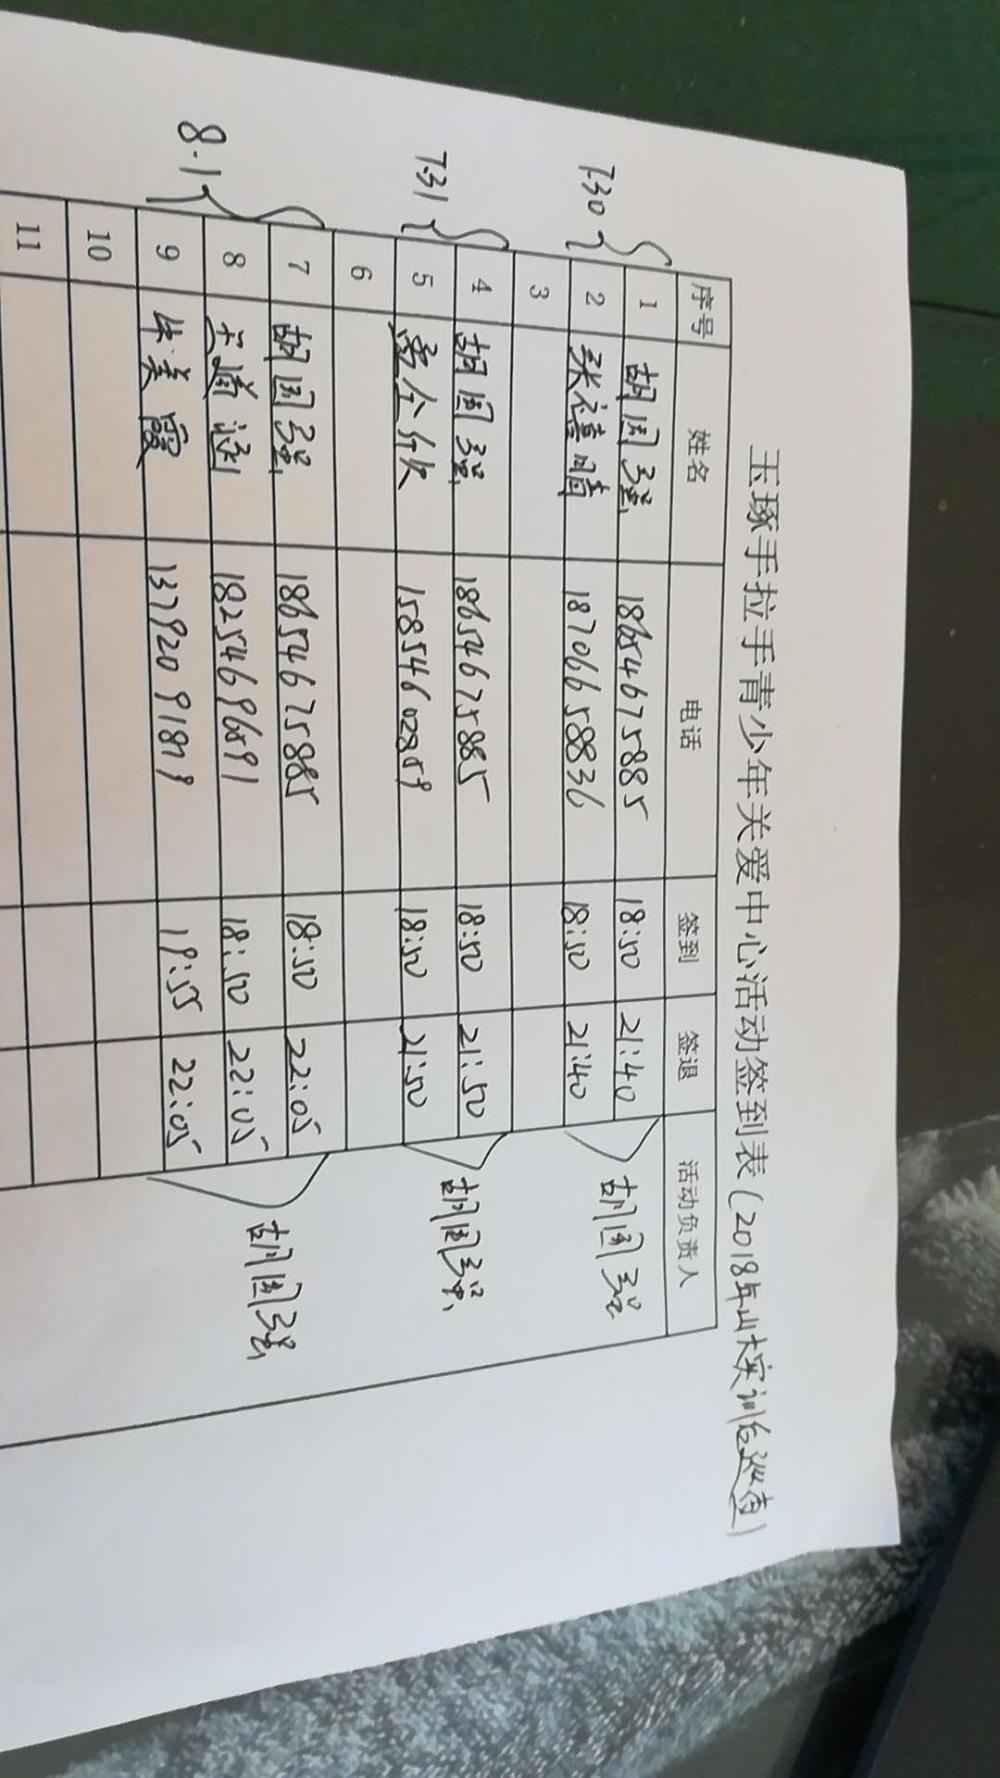 玉琢手拉手青少年关爱中心活动签到表(2018年山大实训台巡查)
序号 姓名 电话 签到 签退 活动负责人
7.30 1 胡国强 18654675885 18:50 21:40 胡国强
2 张禧晴 18706658836 18:50 21:40
3
7.31 4 胡国强 18654675885 18:50 21:50 胡国强
5 15854602859 18:50 21:50
6
8.1 7 胡国强 18654675885 18:50 22:05 胡国强
8 18254696591 18:50 22:05
9 牛美霞 13792091879 19:55 22:05
10
11